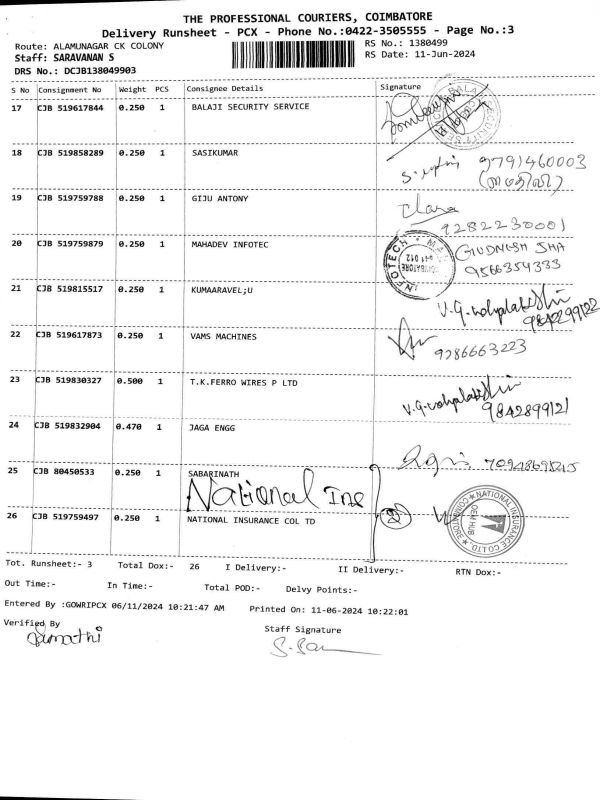 THE PROFESSIONAL COURIERS, COIMBATORE
Delivery Runsheet - PCX - Phone No.:0422-3505555 - Page No.:3
Route: ALAMUNAGAR CK COLONY
RS No.: 1380499
Staff: SARAVANAN S
RS Date: 11-Jun-2024
DRS No.: DCJB138049903
S No Consignment No Weight PCS Consignee Details Signature
17 CJB 519617844 0.250 1 BALAJI SECURITY SERVICE
18 CJB 519858289 0.250 1 SASIKUMAR
9791460003
19 CJB 519759788 0.250 1 GIJU ANTONY
Clara
9282230001
20 CJB 519759879 0.250 1 MAHADEV INFOTEC
INFOTECH
9566354333
21 CJB 519815517 0.250 1 KUMAARAVEL;U
22 CJB 519617873 0.250 1 VAMS MACHINES
9786663223
23 CJB 519830327 0.500 1 T.K.FERRO WIRES P LTD
9842899121
24 CJB 519832904 0.470 1 JAGA ENGG
25 CJB 80450533 0.250 1 SABARINATH
National Ins
26 CJB 519759497 0.250 1 NATIONAL INSURANCE COL TD
NATIONAL INSURANCE CO LTD.
Tot. Runsheet:- 3 Total Dox:- 26 I Delivery:- II Delivery:- RTN Dox:-
Out Time:- In Time:- Total POD:- Delvy Points:-
Entered By :GOWRIPCX 06/11/2024 10:21:47 AM Printed On: 11-06-2024 10:22:01
Verified By
Staff Signature